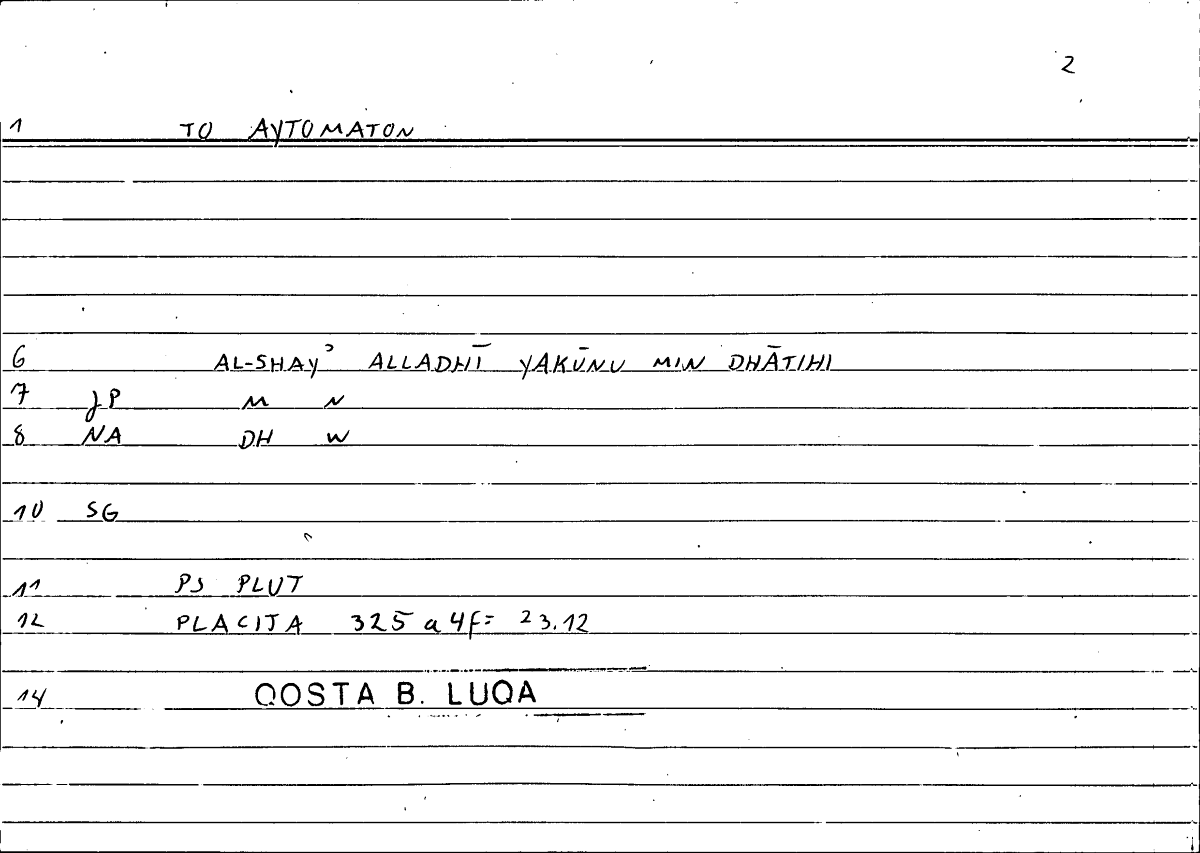 2
1 TO AYTOMATON
6 AL-SHAYʾ ALLADHĪ YAKŪNU MIN DHĀTIHI
7 JP M N
8 NA DH W
10 SG
11 PS PLUT
12 PLACITA 325 a 4f= 23.12
14 QOSTA B. LUQA